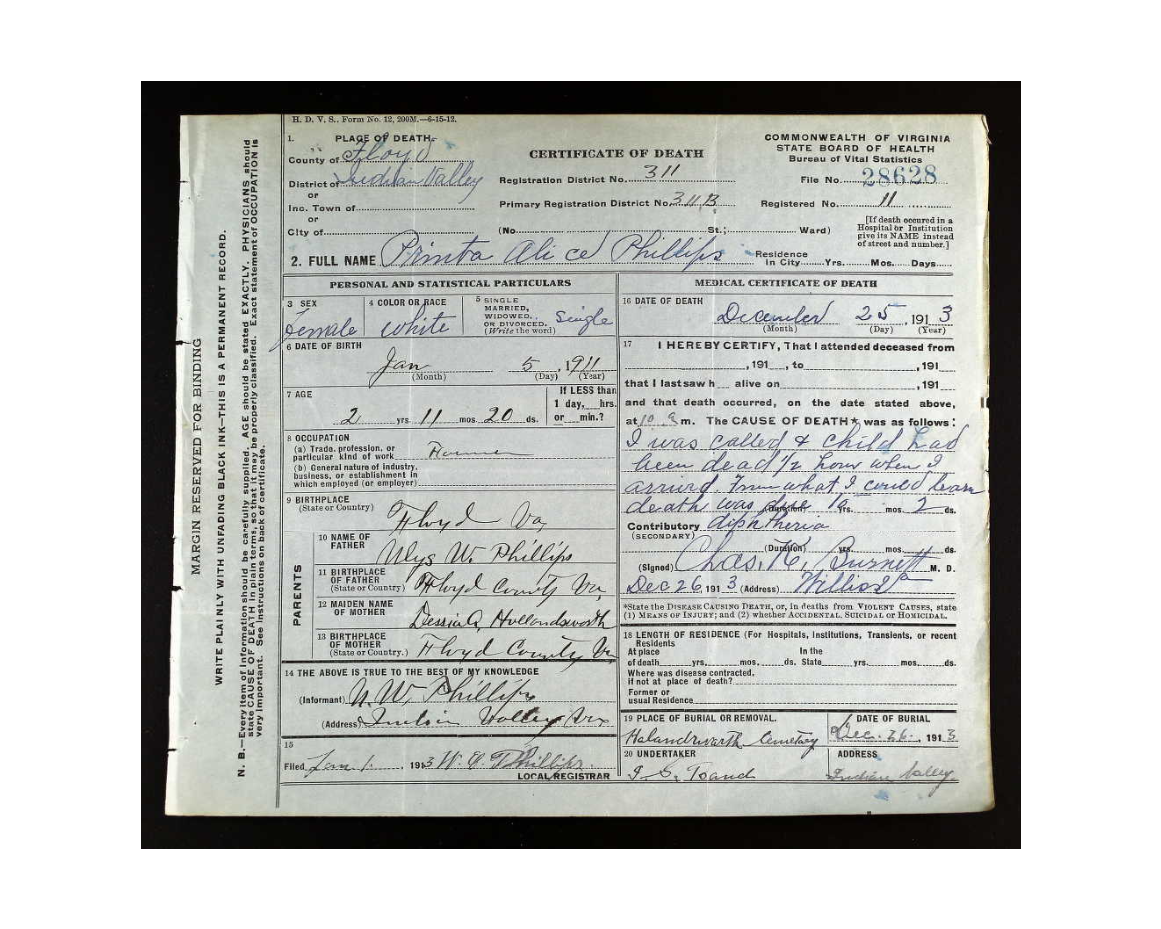 H. D. V. S., Form No. 12, 200M.—6-15-12.
1. PLACE OF DEATH
County of Floyd
District of Indian Valley
or
Inc. Town of
or
City of
CERTIFICATE OF DEATH
Registration District No. 311
Primary Registration District No. 311B
(No. St.; Ward)
COMMONWEALTH OF VIRGINIA
STATE BOARD OF HEALTH
Bureau of Vital Statistics
File No. 28628
Registered No. 11
[If death occured in a
Hospital or Institution
give its NAME instead
of street and number.]
2. FULL NAME Alice Phillips
Residence
In City Yrs. Mos. Days
PERSONAL AND STATISTICAL PARTICULARS
3 SEX
Female
4 COLOR OR RACE
White
5 SINGLE
MARRIED,
WIDOWED,
OR DIVORCED.
(Write the word)
Single
6 DATE OF BIRTH
Jan 5, 1911
(Month) (Day) (Year)
7 AGE
2 yrs. 11 mos. 20 ds.
If LESS than
1 day, hrs.
or min.?
8 OCCUPATION
(a) Trade, profession, or
particular kind of work
(b) General nature of industry,
business, or establishment in
which employed (or employer)
9 BIRTHPLACE
(State or Country)
Floyd Va
PARENTS
10 NAME OF
FATHER
Ulys W. Phillips
11 BIRTHPLACE
OF FATHER
(State or Country)
Floyd County Va
12 MAIDEN NAME
OF MOTHER
Dessia A. Hollandsworth
13 BIRTHPLACE
OF MOTHER
(State or Country.)
Floyd County Va
14 THE ABOVE IS TRUE TO THE BEST OF MY KNOWLEDGE
(Informant) U. W. Phillips
(Address) Indian Valley Va
15
Filed Jan 1, 1913 Phillips.
LOCAL REGISTRAR
MEDICAL CERTIFICATE OF DEATH
16 DATE OF DEATH
December 25, 1913
(Month) (Day) (Year)
17 I HEREBY CERTIFY, That I attended deceased from
, 191 , to , 191
that I last saw h alive on , 191
and that death occurred, on the date stated above,
at 10 a m. The CAUSE OF DEATH* was as follows:
I was called & child had
been dead 1/2 hour when I
arrived. From what I could learn
death was due to
(Duration) yrs. mos. 2 ds.
Contributory diphtheria
(SECONDARY)
(Duration) yrs. mos. ds.
(Signed) Chas. K. Burnett M. D.
Dec 26 1913 (Address) Willis Va
*State the DISEASE CAUSING DEATH, or, in deaths from VIOLENT CAUSES, state
(1) MEANS OF INJURY; and (2) whether ACCIDENTAL, SUICIDAL or HOMICIDAL.
18 LENGTH OF RESIDENCE (For Hospitals, Institutions, Transients, or recent
Residents
At place In the
of death yrs. mos. ds. State yrs. mos. ds.
Where was disease contracted,
if not at place of death?
Former or
usual Residence
19 PLACE OF BURIAL OR REMOVAL.
Cemetery
DATE OF BURIAL
Dec. 26. 1913
20 UNDERTAKER
ADDRESS
Indian Valley
MARGIN RESERVED FOR BINDING
WRITE PLAINLY WITH UNFADING BLACK INK—THIS IS A PERMANENT RECORD.
N. B.—Every item of information should be carefully supplied. AGE should be stated EXACTLY. PHYSICIANS should
state CAUSE OF DEATH in plain terms, so that it may be properly classified. Exact statement of OCCUPATION is
very important. See instructions on back of certificate.